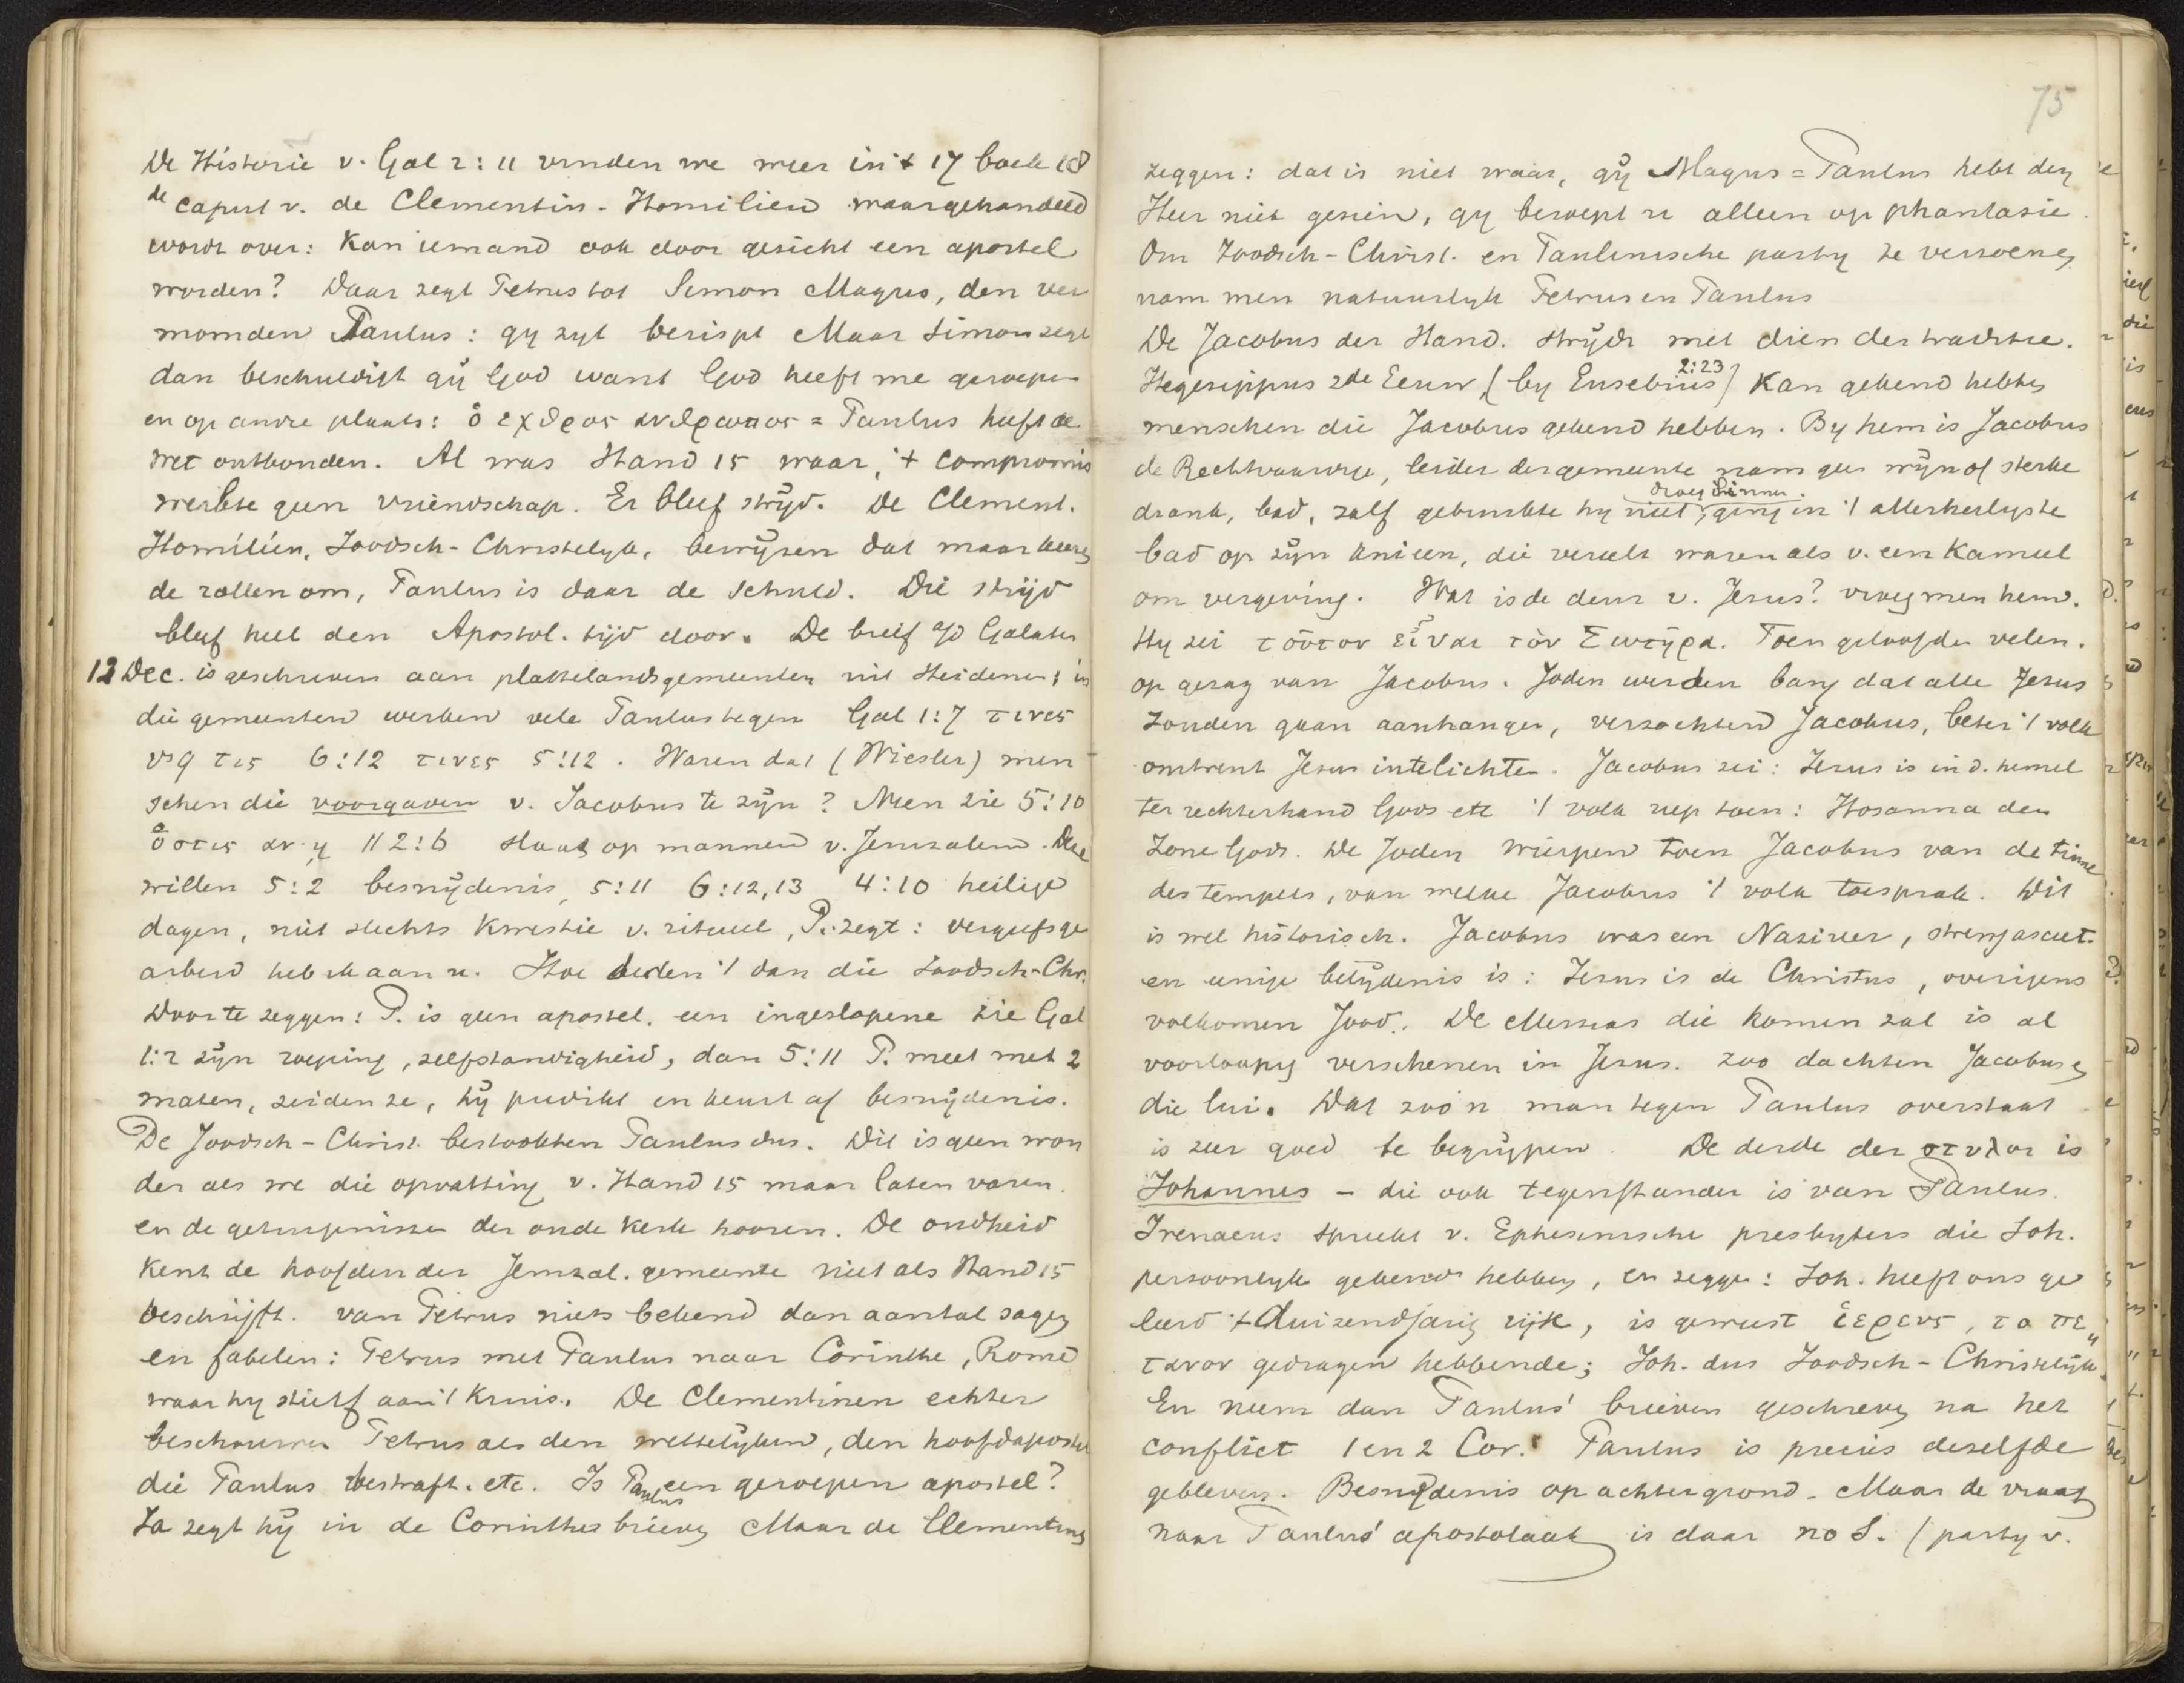 De Historie v. Gal 2:11 vinden we weer in 't 17 boek 18
de caput v. de Clementin. Homilien waar gehandeld
wordt over: Kan iemand ook door gezicht een apostel
worden? Daar zegt Petrus tot Simon Magus, den ver
momden Paulus: gy zyt berispt Maar Simon zegt
dan beschuldigt gÿ God want God heeft me geroepen
en op andre plaats: ὁ εχθρος ανθρωπος = Paulus heeft de
wet ontbonden. Al was Hand 15 waar, 't compromis
werkte geen vriendschap. Er bleef stryd. De Clement.
Homiliën, Joodsch-Christelyk, bewÿzen dat maar keeren
de rollen om, Paulus is daar de schuld. Die strijd
bleef heel den Apostol. tijd door. De brief a/d Galaten
12 Dec. is geschreven aan plattelandsgemeenten uit Heidenen; in
die gemeenten werken vele Paulus tegen Gal 1:7 τινες
vs 9 τις 6:12 τινες 5:12. Waren dat (Wiesler) men
schen die voorgaven v. Jacobus te zÿn? Neen zie 5:10
ὁστις αν ῃ // 2:6 slaat op mannen v. Jeruzalem. Deze
willen 5:2 besnÿdenis, 5:11 6:12,13 4:10 heilige
dagen, niet slechts kwestie v. ritueel, P. zegt: vergeefsge
arbeid heb ik aan u. Hoe deden 't dan die Joodsch-Chr.
Door te zeggen: P. is geen apostel. een ingeslopene zie Gal
1:2 zÿn roeping, zelfstandigheid, dan 5:11 P. meet met 2
maten, zeiden ze, hÿ predikt en keurt af besnÿdenis.
De Joodsch-Christ. bestookten Paulus dus. Dit is geen won
der als we die opvatting v. Hand 15 maar laten varen.
en de getuigenissen der oude Kerk hooren. De oudheid
Kent de hoofden der Jeruzal. gemeente niet als Hand 15
beschrijft. van Petrus niets bekend dan aantal sagen
en fabelen: Petrus met Paulus naar Corinthe, Rome
waar hy stierf aan 't kruis. De Clementinen echter
beschouwen Petrus als den wettelÿken, den hoofdapostel
die Paulus bestraft. etc. Is Paulus een geroepen apostel?
Ja zegt hÿ in de Corinther brieven Maar de Clementinen
75
zeggen: dat is niet waar, gÿ Magus = Paulus hebt den
Heer niet gezien, gy beroept u alleen op phantasie.
Om Joodsch-Christ. en Paulinische party te verzoenen
nam men natuurlyk Petrus en Paulus
De Jacobus der Hand. strÿdt met dien der traditie.
Hegesippus 2de Eeuw, (by Eusebius 2:23) Kan gekend hebben
menschen die Jacobus gekend hebben. By hem is Jacobus
de Rechtvaardige, leider der gemeente nam geen wÿn of sterke
drank, bad, zalf gebruikte hy niet, droeg linnen. ging in 't allerheiligste
bad op zÿn knieen, die vereelt waren als v. een Kameel
om vergeving. Wat is de deur v. Jesus? vroeg men hem.
Hy zei τοῦτον εἶναι τὸν Σωτῆρα. Toen geloofden velen.
op gezag van Jacobus. Joden werden bang dat alle Jesus
zouden gaan aanhangen, verzochten Jacobus, beter 't volk
omtrent Jesus in te lichten. Jacobus zei: Jesus is in d. hemel
ter rechterhand Gods etc 't volk riep toen: Hosanna den
Zone Gods. De Joden wierpen toen Jacobus van de tinne
des tempels, van welke Jacobus 't volk toesprak. Dit
is wel historisch. Jacobus was een Nazireer, streng asceet.
en eenige belÿdenis is: Jesus is de Christus, overigens
volkomen Jood. De Messias die komen zal is al
voorloopig verschenen in Jesus. zoo dachten Jacobus en
die lui. Dat zoo'n man tegen Paulus overstaat
is zeer goed te begrÿpen. De derde der στυλοι is
Johannes – die ook tegenstander is van Paulus.
Irenaeus spreekt v. Ephesinische presbyters die Joh.
persoonlyk gekend hebben, en zeggen: Joh. heeft ons ge
leerd 't duizendjarig rijk, is geweest ἱερευς, το πε„
ταλον gedragen hebbende; Joh. dus Joodsch-Christelÿk.
En neem dan Paulus' brieven geschreven na het
conflict 1 en 2 Cor. Paulus is precies dezelfde
gebleven. Besnÿdenis op achtergrond. Maar de vraag
naar Paulus' apostolaat is daar no 1. (party v.